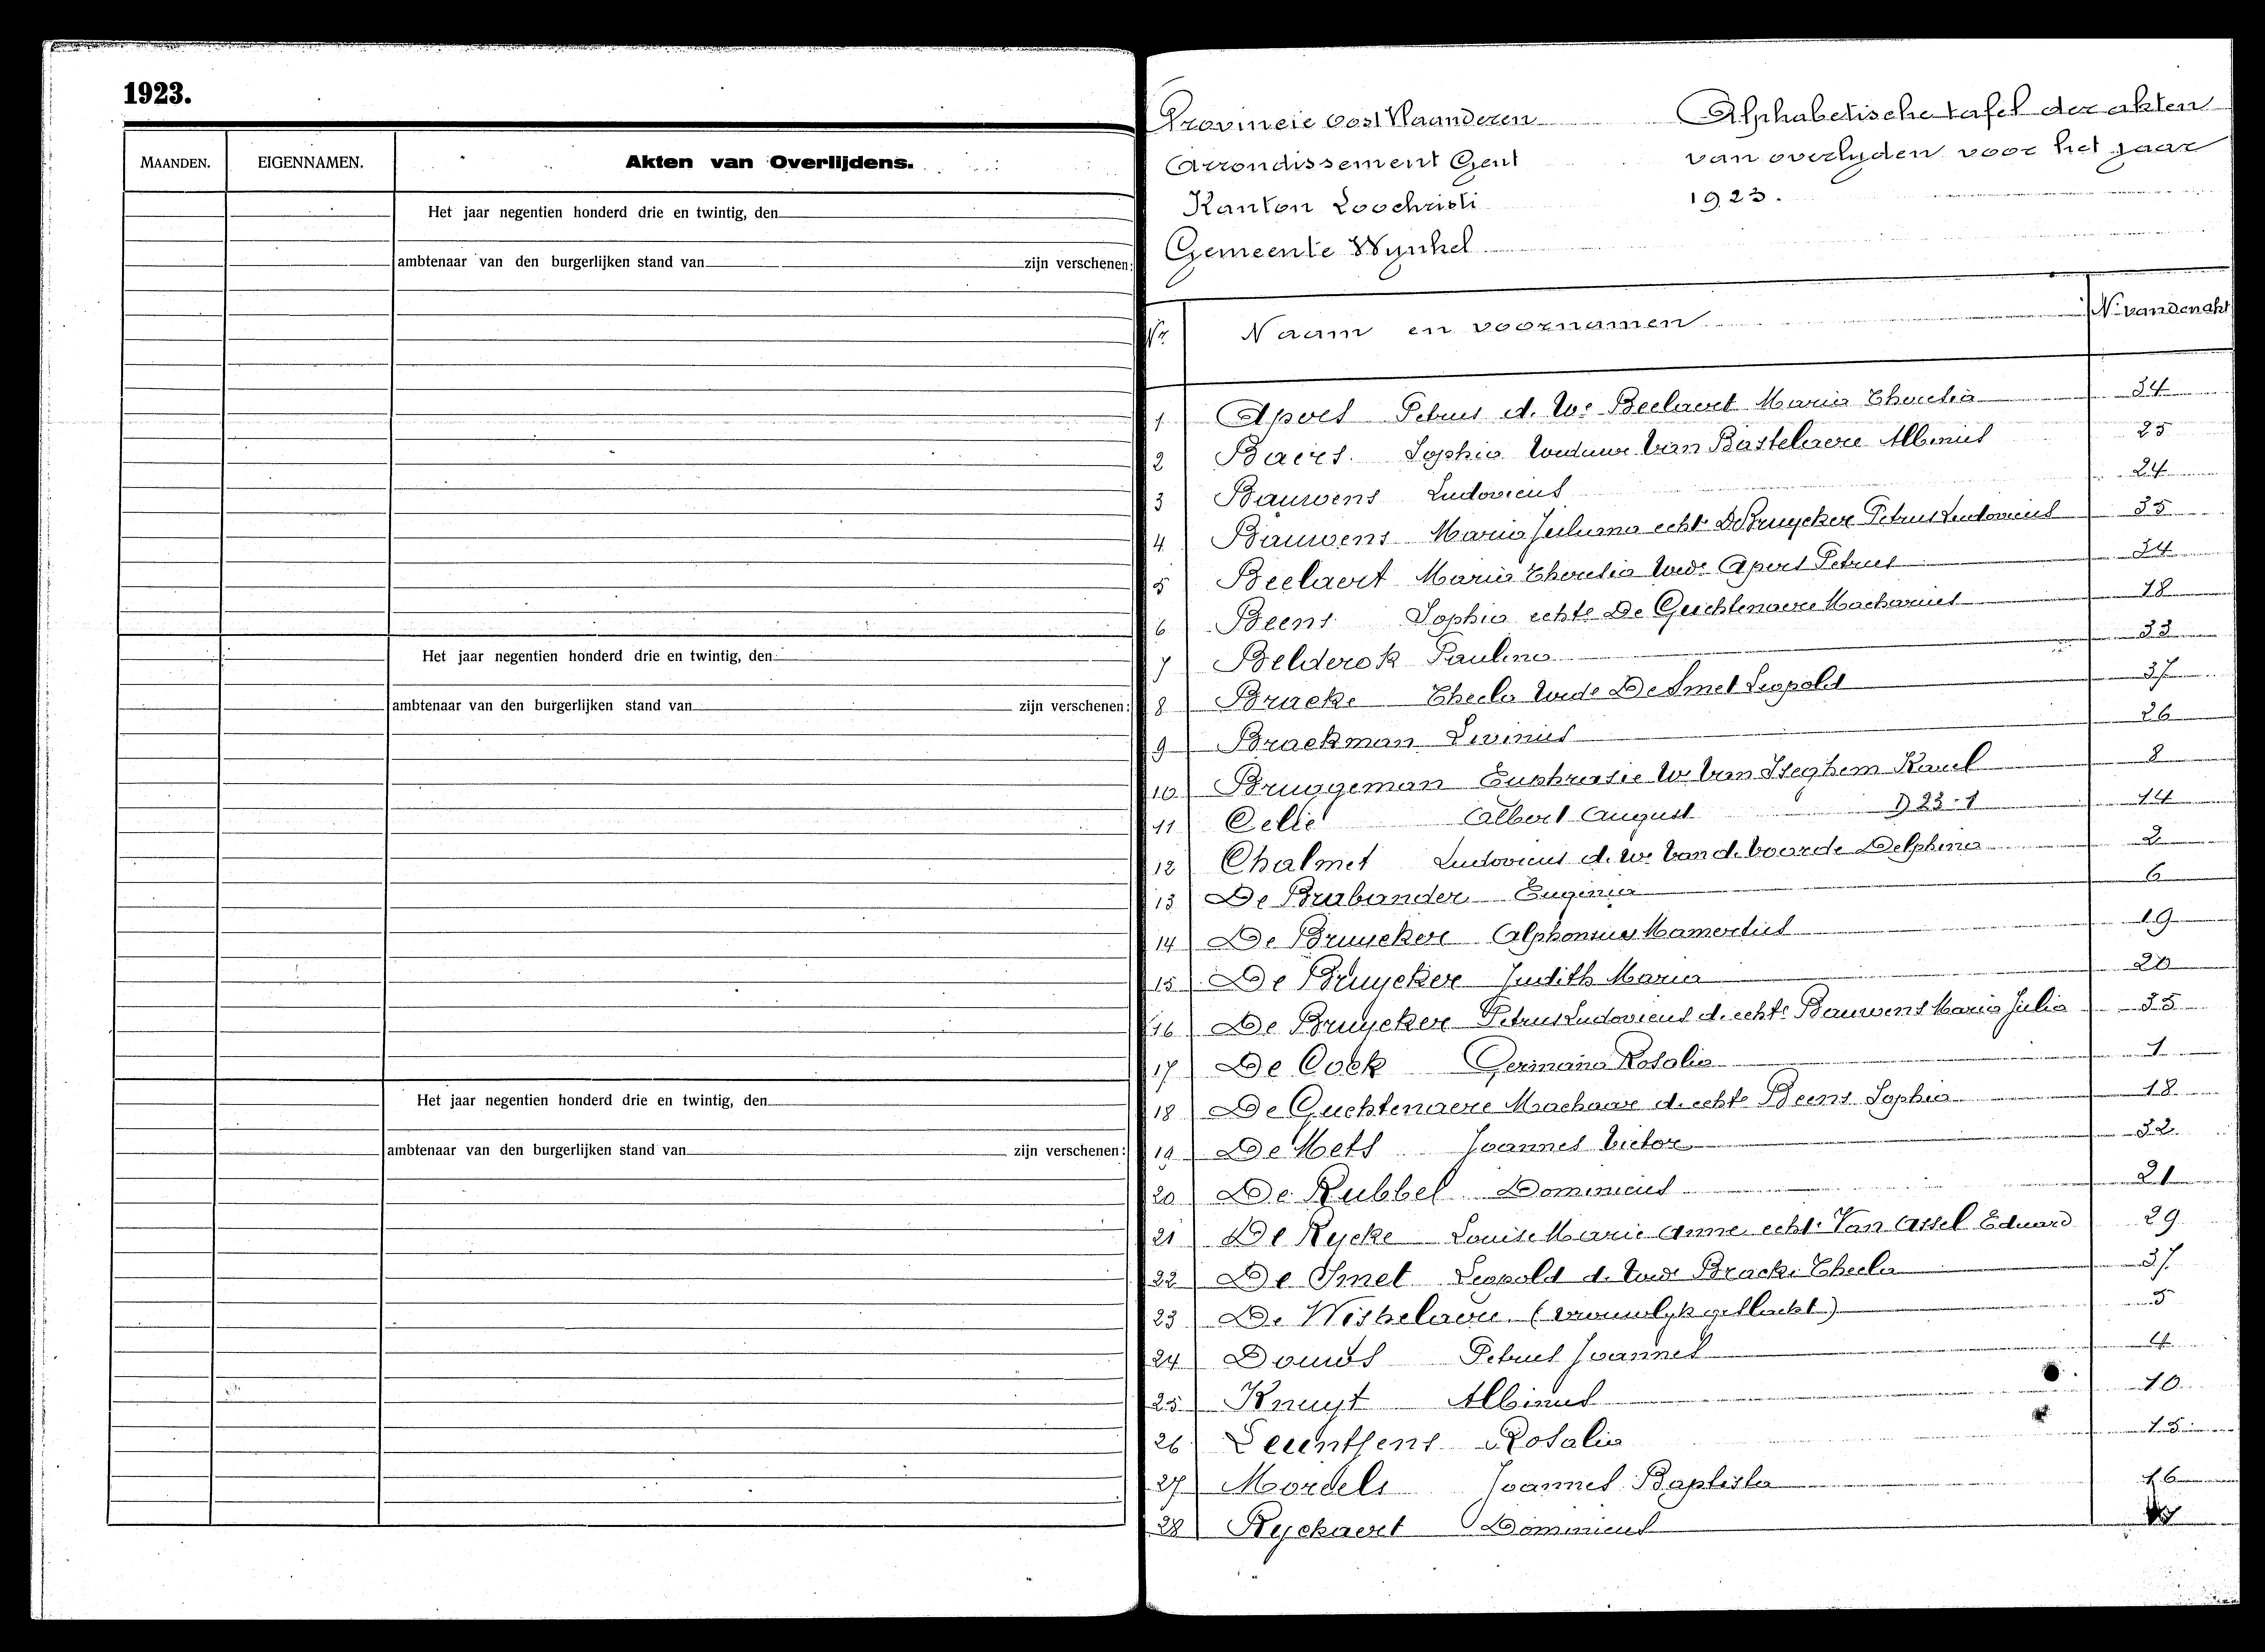 1923.
MAANDEN. EIGENNAMEN. Akten van Overlijdens.
Het jaar negentien honderd drie en twintig, den
ambtenaar van den burgerlijken stand van zijn verschenen:
Het jaar negentien honderd drie en twintig, den
ambtenaar van den burgerlijken stand van zijn verschenen:
Het jaar negentien honderd drie en twintig, den
ambtenaar van den burgerlijken stand van zijn verschenen:
Provincie Oost Vlaanderen
Arrondissement Gent
Kanton Loochristi
Gemeente Wynkel
Alphabetische tafel der akten
van overlyden voor het jaar
1923.
Nr Naam en voornamen Nr van den akt
1 Apers Petrus d. We Beelaert Maria Theresia 34
2 Baers Sophia Weduwe Van Bastelaere Albinus 25
3 Bauwens Ludovicus 24
4 Bauwens Maria Juliana echte De Bruycker Petrus Ludovicus 35
5 Beelaert Maria Theresia Wede Apers Petrus 34
6 Beens Sophia echte De Guchtenaere Macharius 18
7 Belderok Paulina 33
8 Bracke Thecla Wede De Smet Leopold 37
9 Braekman Livinus 26
10 Bruggeman Euphrasie We Van Iseghem Karel 8
11 Celie Albert August D 23-1 14
12 Chalmet Ludovicus d. We Van d. Voorde Delphina 2
13 De Brabander Eugenia 6
14 De Bruycker Alphonsus Mamertus 19
15 De Bruycker Judith Maria 20
16 De Bruycker Petrus Ludovicus d. echte Bauwens Maria Julia 35
17 De Cock Germana Rosalia 1
18 De Guchtenaere Machaar d. echte Beens Sophia 18
19 De Mets Joannes Victor 32
20 De Rubbel Dominicus 21
21 De Rycke Louise Marie Anne echte Van Assel Eduard 29
22 De Smet Leopold d. Wede Bracke Thecla 37
23 De Weshelaere (vrouwlyk geslacht) 5
24 Petrus Joannes 4
25 Knuyt Albinus 10
26 Leenthens Rosalia 15
27 Mordels Joannes Baptista 16
28 Ryckaert Dominicus